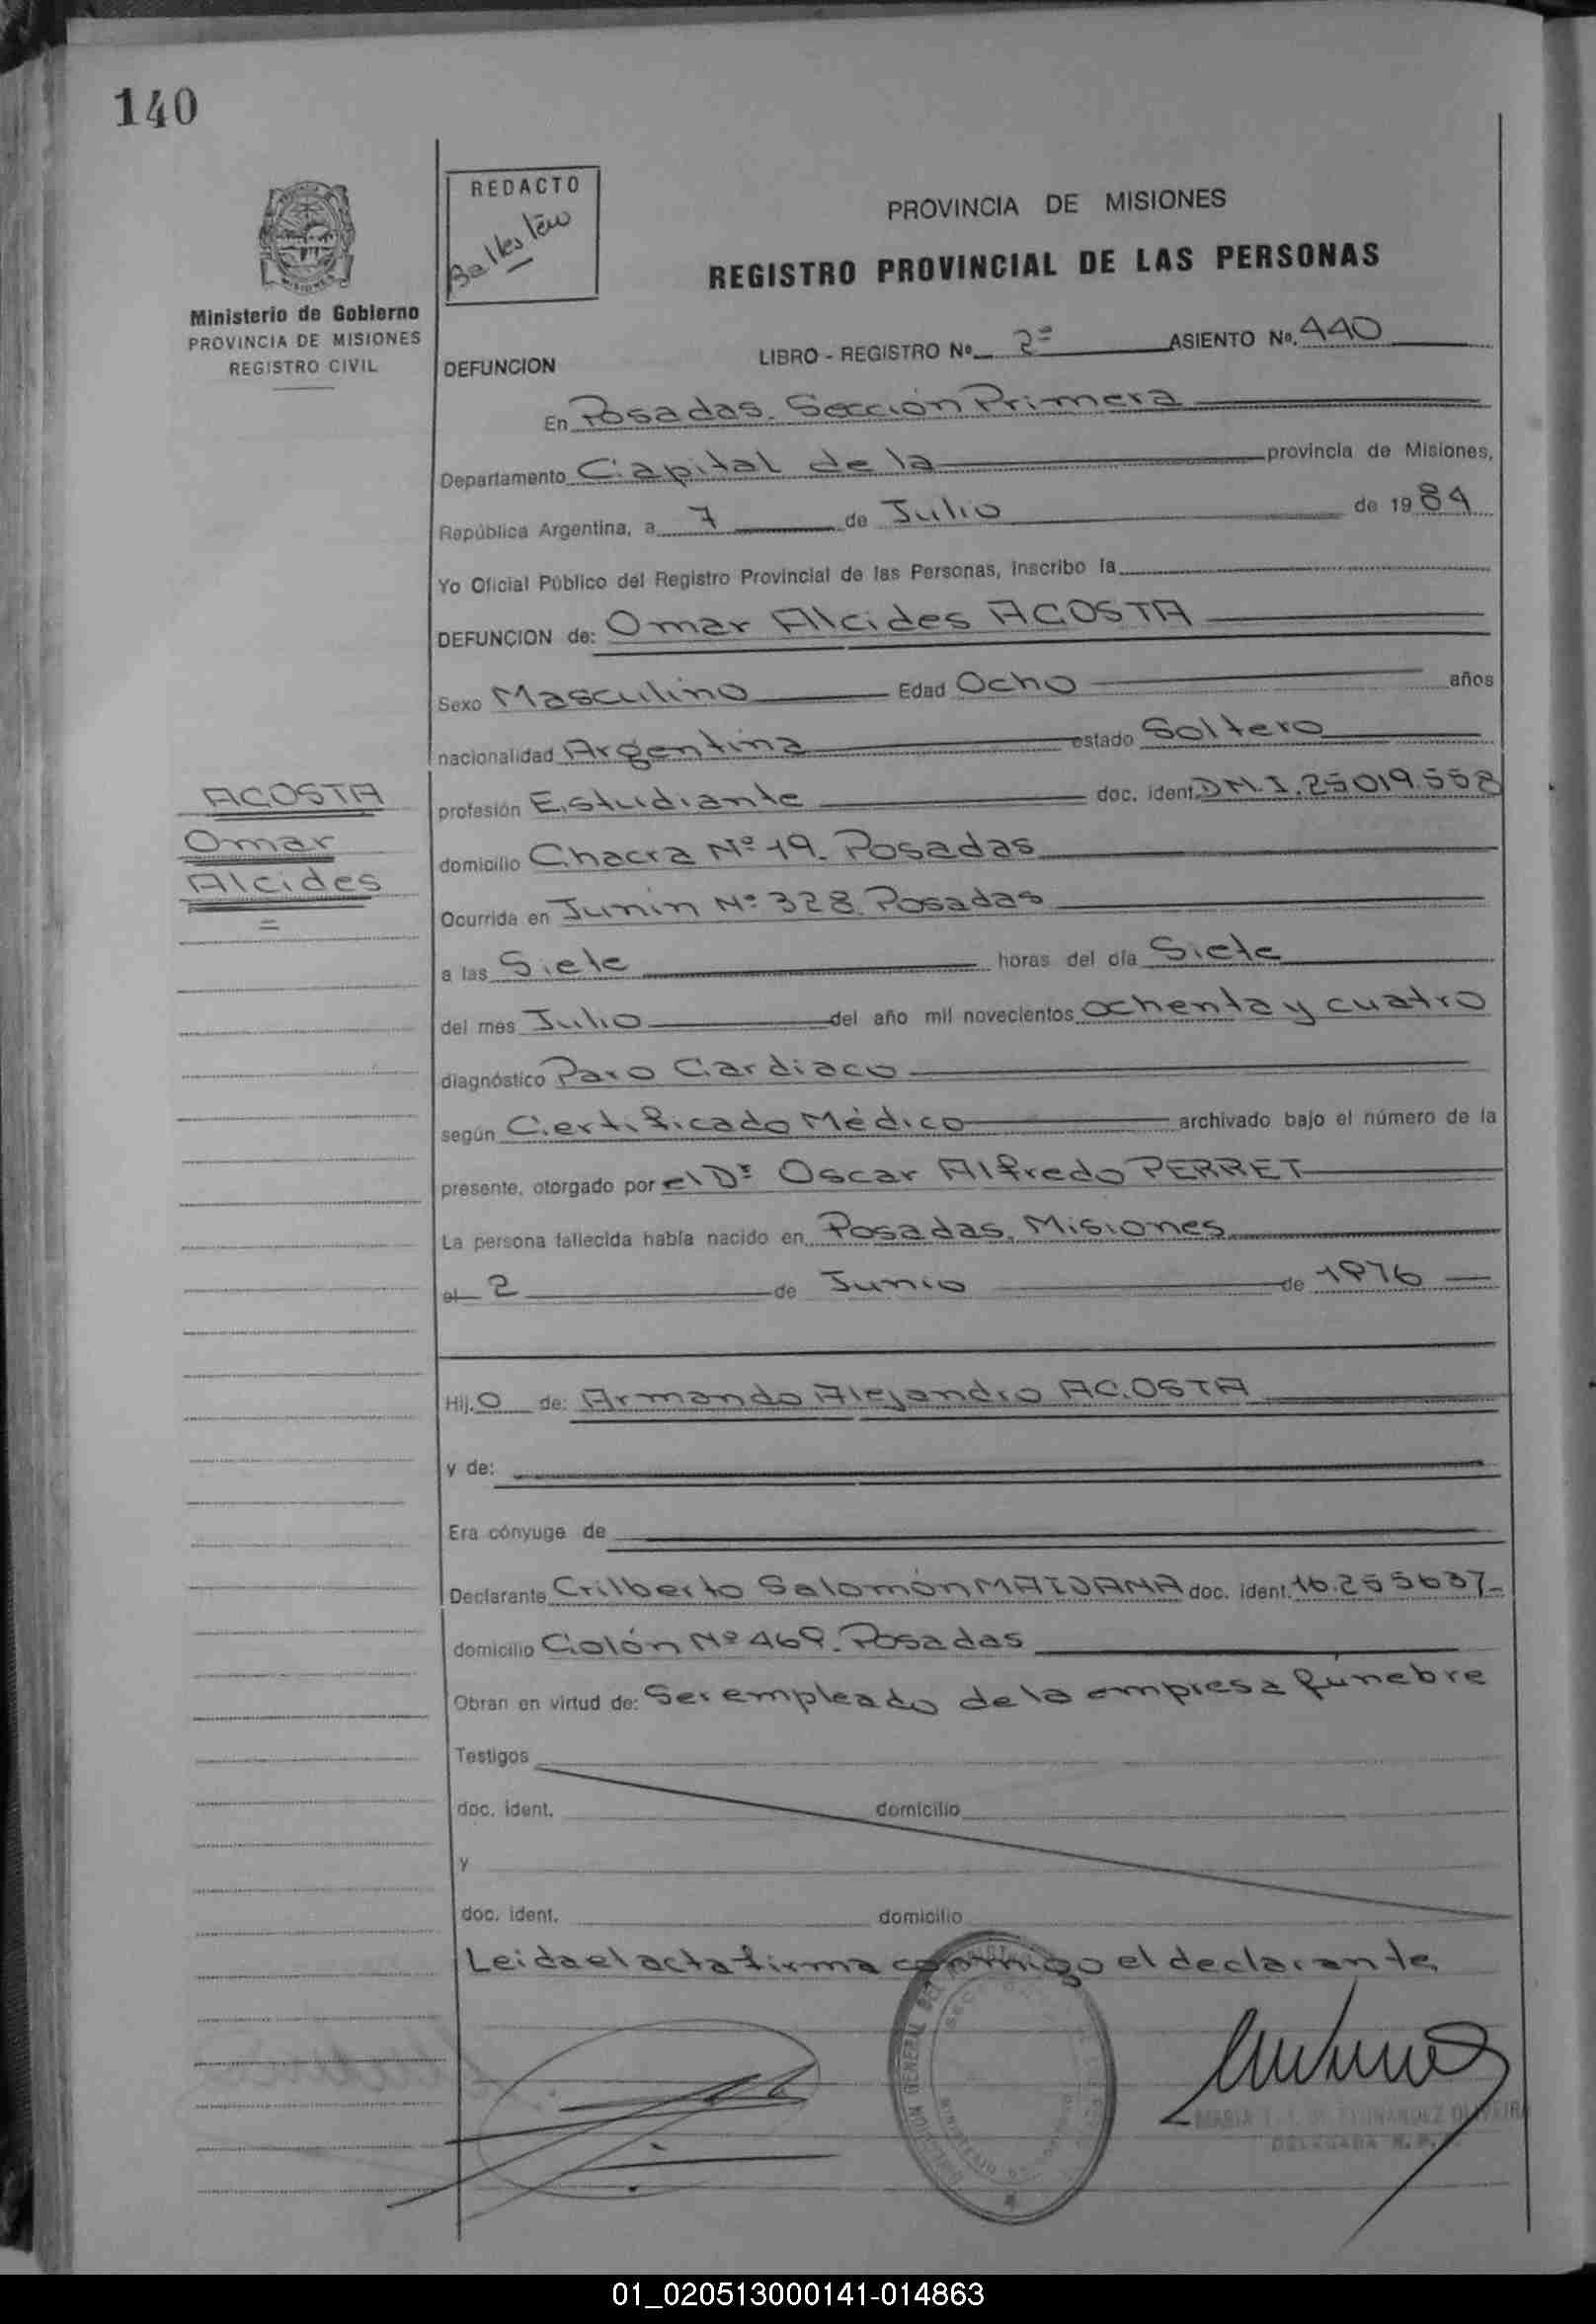 140
REDACTO
Ballesteu
PROVINCIA DE MISIONES
REGISTRO PROVINCIAL DE LAS PERSONAS
Ministerio de Gobierno
PROVINCIA DE MISIONES
REGISTRO CIVIL
DEFUNCION LIBRO - REGISTRO Nº 2º ASIENTO Nº. 440
En Posadas. Sección Primera
Departamento Capital de la provincia de Misiones,
República Argentina, a 7 de Julio de 1984
Yo Oficial Público del Registro Provincial de las Personas, inscribo la
DEFUNCION de: Omar Alcides ACOSTA
Sexo Masculino Edad Ocho años
nacionalidad Argentina estado Soltero
ACOSTA
Omar
Alcides
profesión Estudiante doc. ident. D.M.I. 25019.558
domicilio Chacra Nº 19. Posadas
Ocurrida en Junín Nº 328. Posadas
a las Siete horas del día Siete
del mes Julio del año mil novecientos ochenta y cuatro
diagnóstico Paro Cardiaco
según Certificado Médico archivado bajo el número de la
presente, otorgado por el Dr Oscar Alfredo PERRET
La persona fallecida había nacido en Posadas, Misiones
el 2 de Junio de 1976
Hij.o de: Armando Alejandro ACOSTA
y de:
Era cónyuge de
Declarante Gilberto Salomón MAIDANA doc. ident. 16.255637-
domicilio Colón Nº 469. Posadas
Obran en virtud de: Ser empleado de la empresa fúnebre
Testigos
doc. ident. domicilio
y
doc. ident. domicilio
Leida el acta firma conmigo el declarante
MARIA FERNANDEZ OLIVEIRA
DELEGADA R. P.
01_020513000141-014863